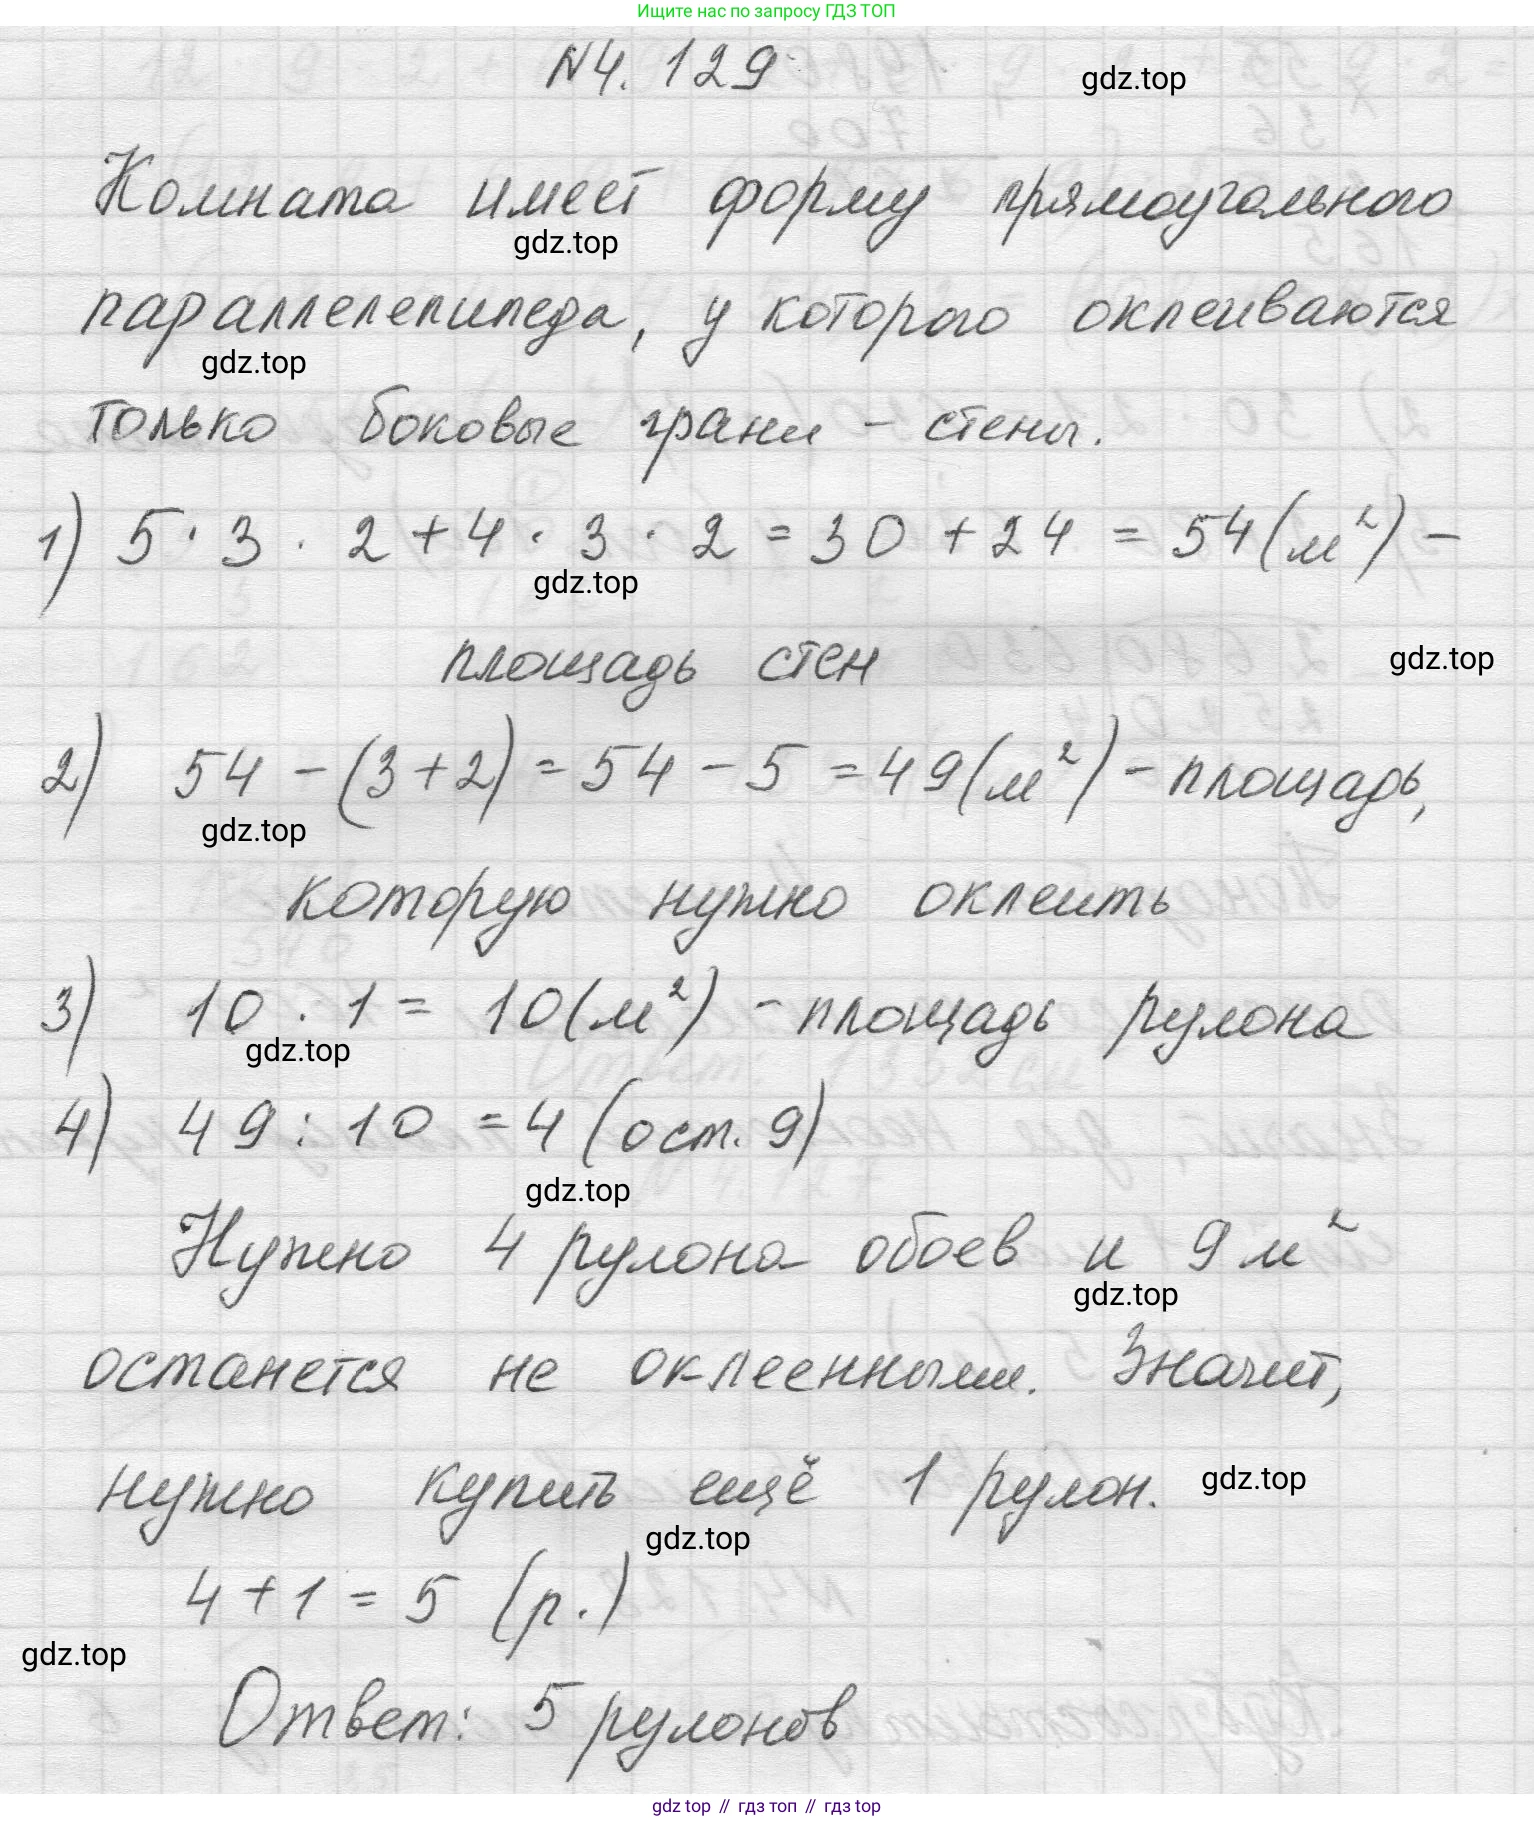 Ищите нас по запросу ГДЗ ТОП
№4.129
gdz.top
Комната имеет форму прямоугольного
gdz.top
параллелепипеда, у которого оклеиваются
gdz.top
только боковые грани - стены.
1) 5 · 3 · 2 + 4 · 3 · 2 = 30 + 24 = 54 (м²) -
gdz.top
площадь стен
gdz.top
2) 54 - (3 + 2) = 54 - 5 = 49 (м²) - площадь,
gdz.top
которую нужно оклеить
3) 10 · 1 = 10 (м²) - площадь рулона
gdz.top
4) 49 : 10 = 4 (ост. 9)
gdz.top
Нужно 4 рулона обоев и 9 м²
gdz.top
останется не оклеенными. Значит,
нужно купить ещё 1 рулон.
gdz.top
gdz.top
4 + 1 = 5 (р.)
gdz.top
Ответ: 5 рулонов
gdz top // гдз топ // гдз top